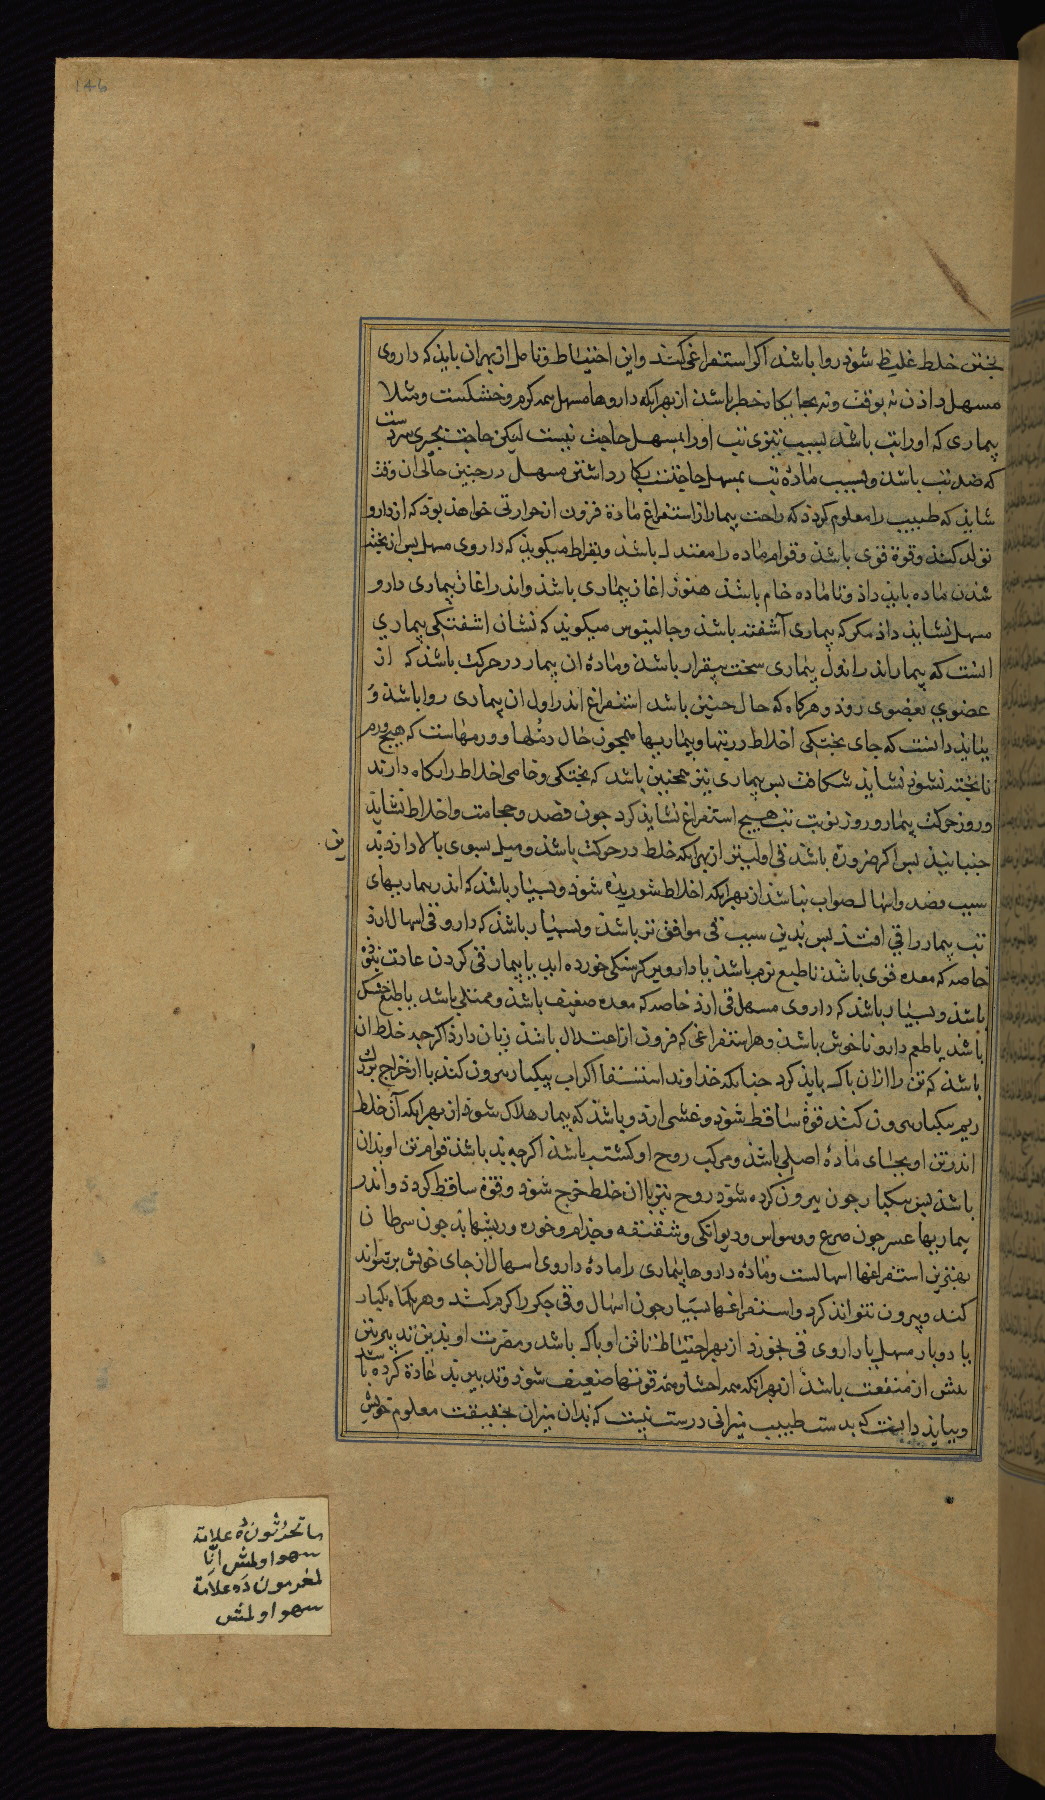 146
بختن خلط غلیظ شوذ روا باشذ اکر استفراغی کنند واین احتیاط وتامل از بهران بایذ که داروی
مسهل داذن نه بوقت ونه بجایکاه خطر باشذ از بهر انکه داروها مسهل همه کرم وخشکست ومثلا
بیماری که اورا تب باشذ بسبب تیزی تب اورا بمسهل حاجت نیست لیکن حاجت بجیزی سردست
که ضد تب باشذ وبسبب مادۀ تب بمسهل حاجتست بکار داشتن مسهل در جنین حالی ان وقت
شایذ که طبیب را معلوم کردذ که راحت بیمار از استفراغ مادة فزون از حرارتی خواهذ بوذ که از دارو
تولد کند وقوة قوی باشذ وقوام ماده را معتدل باشذ وبقراط میکویذ که داروی مسهل بس از بخته
شذن ماده بایذ داذ وتا ماده خام باشذ هنوز اغاز بیماری باشذ واندر اغاز بیماری دارو
مسهل نشایذ داذ مکر که بیماری آشفته باشذ وجالینوس میکویذ که نشان اشفتکی بیماری
انست که بیمار اندر اول بیماری سخت بیقرار باشذ ومادۀ ان بیمار در حرکت باشذ که از
عضوی بعضوی روذ وهرکاه که حال جنین باشد استفراغ اندر اول ان بیماری روا باشذ و
ببایذ دانست که جای بختکی اخلاط در تنها وبیماریها همجون حال دملها وورمهاست که هیج ورم
نابخته نشوذ نشایذ شکافت بس بیماری نیز همجنین باشد که بختکی وخامی اخلاط را نکاه دارند
وروز حرکت بیمار وروز نوبت تب هیج استفراغ نشایذ کرد جون فصد وحجامت واخلاط نشایذ
جنبانیذ بس اکر ضرورة باشذ قی اولیتر از بهر انکه خلط در حرکت باشذ ومیل بسوی بالا دارد بذین
سبب فصد واسهال صواب نباشذ از بهر انکه اخلاط شوریذه شوذ وبسیار باشذ که اندر بیماریهای
تب بیمار را قی افتذ بس بذین سبب قی موافق تر باشذ وبسیار باشذ که دارو قی اسهال ارد
خاصه که معده قوی باشذ تا طبع نرم باشذ یا دارو بر کرسنکی خورده اید یا بیمار قی کردن عادت نبوذه
باشذ وبسیار باشذ که داروی مسهل قی ارذ خاصه که معده ضعیف باشذ وممتلی باشد یا طبع خشک
باشد یا طعم دارو ناخوش باشذ وهر استفراغی که فزون از اعتدال باشذ زیان دارذ اکرجه خلط ان
باشذ که تن را ازان باک بایذ کرد جنانکه خذاوند استسقا اکر اب بیکبار بیرون کنذ یا از خراج بزرک
ریم بیکبار بیرون کنند قوة ساقط شوذ وغشی ارد وباشذ که بیمار هلاک شوذ از بهر انکه آن خلط
اندر تن او بجای مادۀ اصلی باشذ ومرکب روح او کشته باشذ اکرجه بد باشذ قوام تن او بدان
باشذ بس بیکبار جون بیرون کرده شوذ روح نیز با ان خلط خرج شوذ وقوة ساقط کردذ واندر
بیماریها عسر جون صرع ووسواس ودیوانکی وشقیقه وجذام وخوره وریشهاء بذ جون سرطان
بهترین استفراغها اسهالست ومادۀ داروها بیماری را مادۀ داروی اسهال از جای خویش برتواند
کند وبیرون نتواند کرد واستفراغها بسیار جون اسهال وقی جکر را کرم کنذ وهر یکماه یکبار
یا دوبار مسهل یا داروی قی بخورد از بهر احتیاط تا تن او باک باشد ومضرت او بذین تدبیر تن
بیش از منفعت باشذ از بهر انکه همه احشا وهمه قوتها ضعیف شوذ وتدبیر بذ عادة کرده باشد
وببایذ دانست که بدست طبیب میزانی درست نیست که بدان میزان بحقیقت معلوم خویش
ین
ما تحرثون دۀ علامة
سهو اولمش انّا
لمغرمون دَه علامة
سهو اولمش